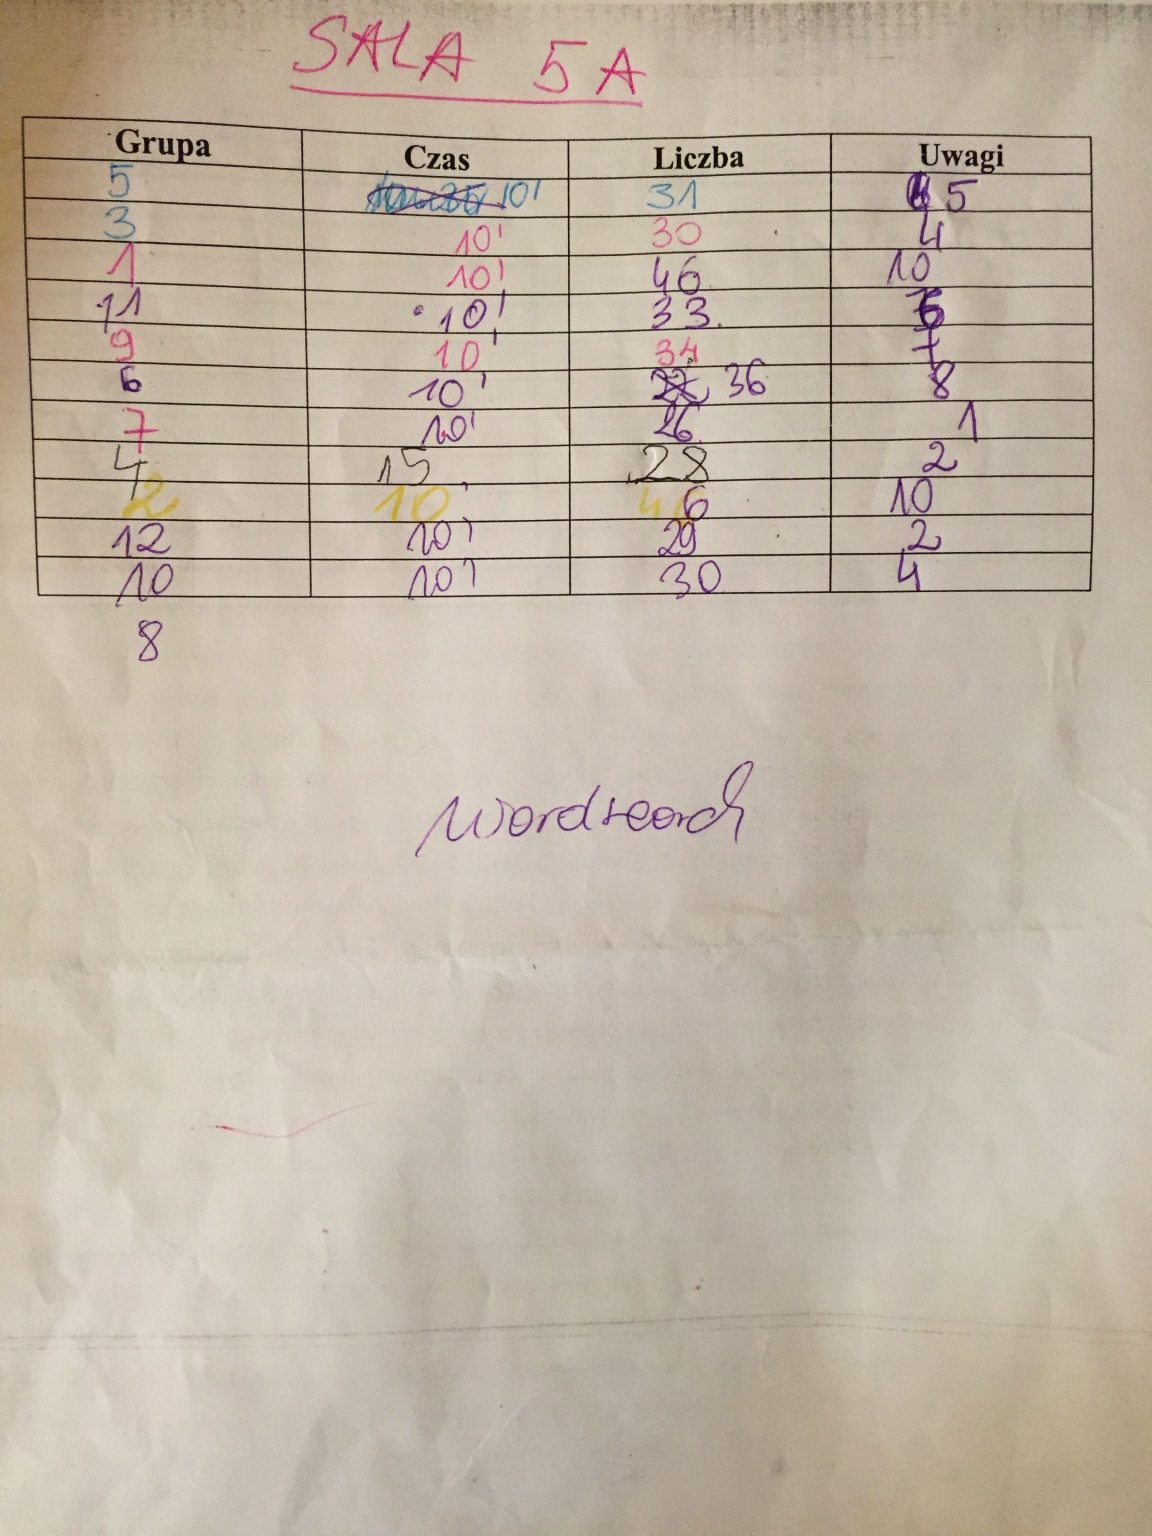 SALA 5A
Grupa Czas Liczba Uwagi
5 10' 31 5
3 10' 30 4
1 10' 46 10
11 10' 33
9 10' 34 7
6 10' 36 8
7 10' 26 1
4 15 28 2
2 10' 46 10
12 10' 29 2
10 10' 30 4
8
Wordsearch